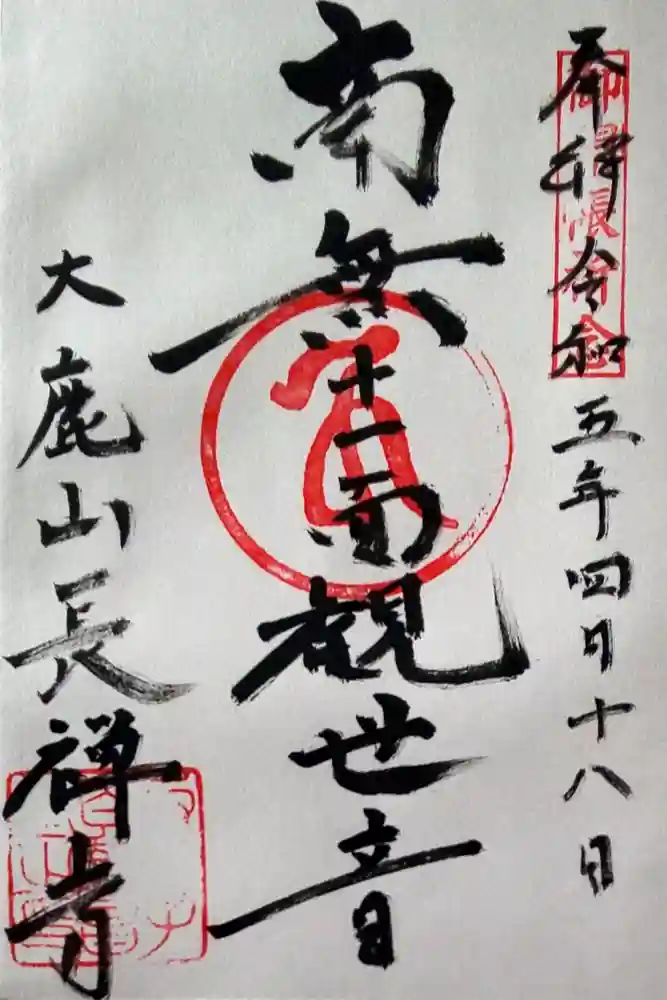 奉拝令和五年四月十八日
南無十一面観世音
大鹿山長禅寺